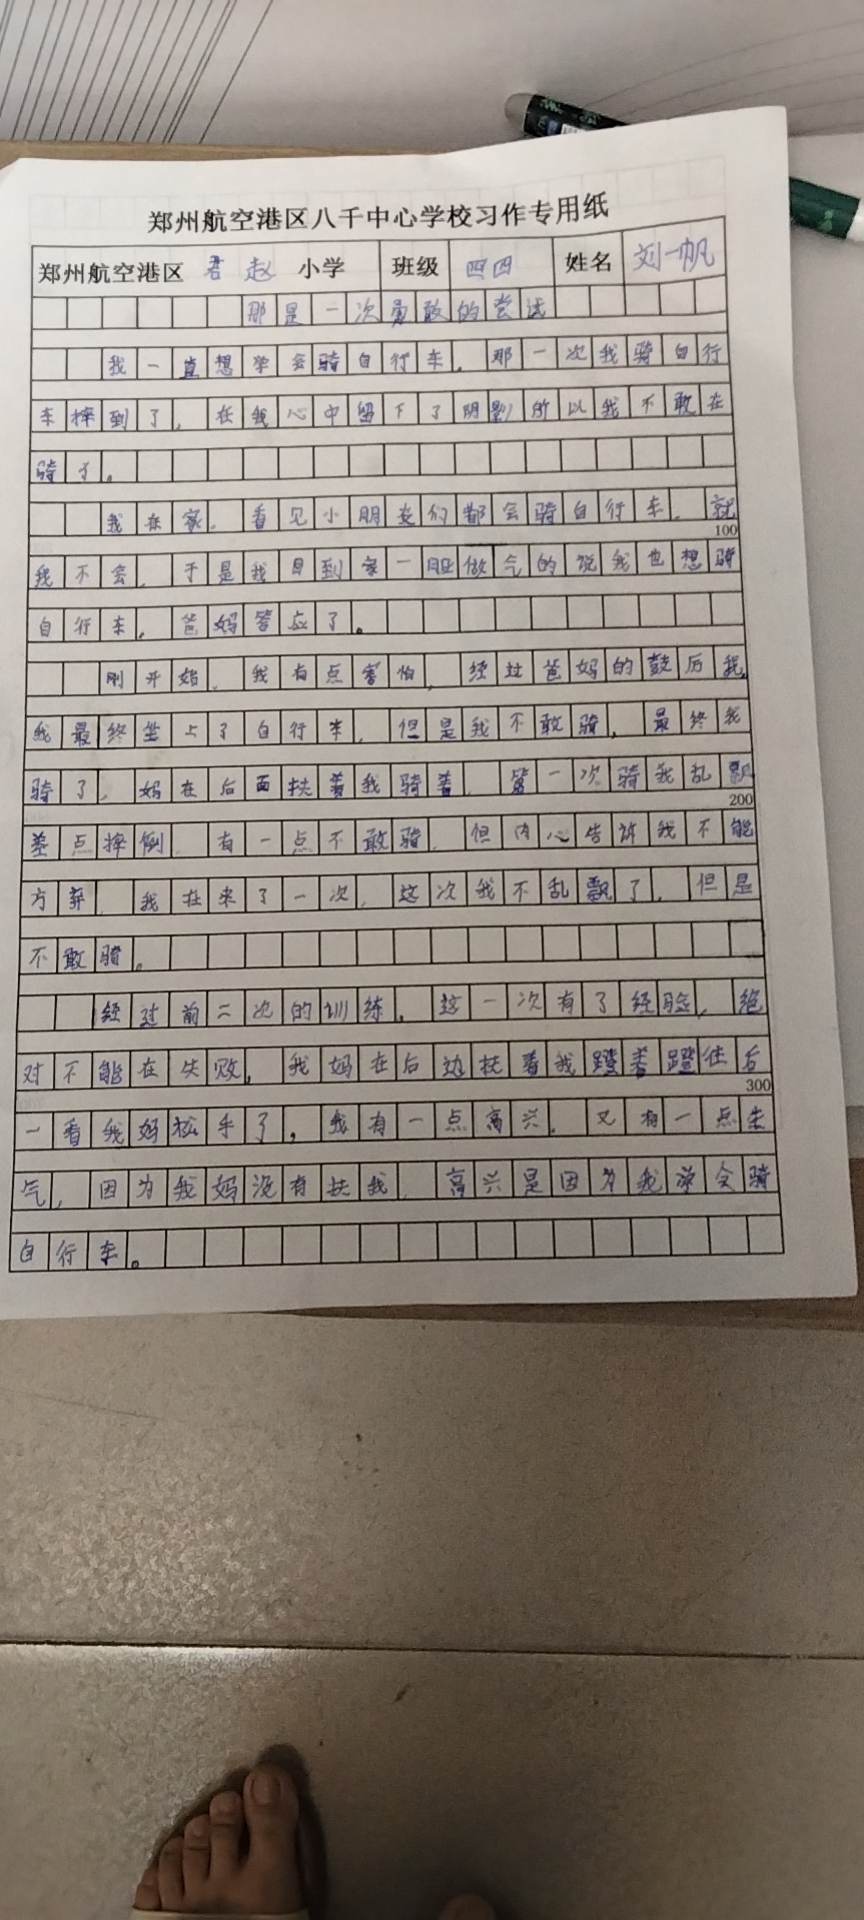 郑州航空港区八千中心学校习作专用纸
郑州航空港区 君赵 小学 班级 四四 姓名 刘一帆
那是一次勇敢的尝试
我一直想学会骑自行车,那一次我骑自行
车摔到了,在我心中留下了阴影所以我不敢在
骑了。
我在家,看见小朋友们都会骑自行车,就
100
我不会,于是我回到家一胆做气的说我也想骑
自行车,爸妈答应了。
刚开始,我有点害怕,经过爸妈的鼓厉我,
我最终坐上了自行车,但是我不敢骑,最终我
骑了,妈在后面扶着我骑着,第一次骑我乱飘
200
差点摔倒,有一点不敢骑,但内心告诉我不能
方弃,我在来了一次,这次我不乱飘了,但是
不敢骑。
经过前二次的训练,这一次有了经验,绝
对不能在失败,我妈在后边扶着我蹬着蹬往后
300
一看我妈松手了,我有一点高兴,又有一点生
气,因为我妈没有扶我,高兴是因为我学会骑
自行车。